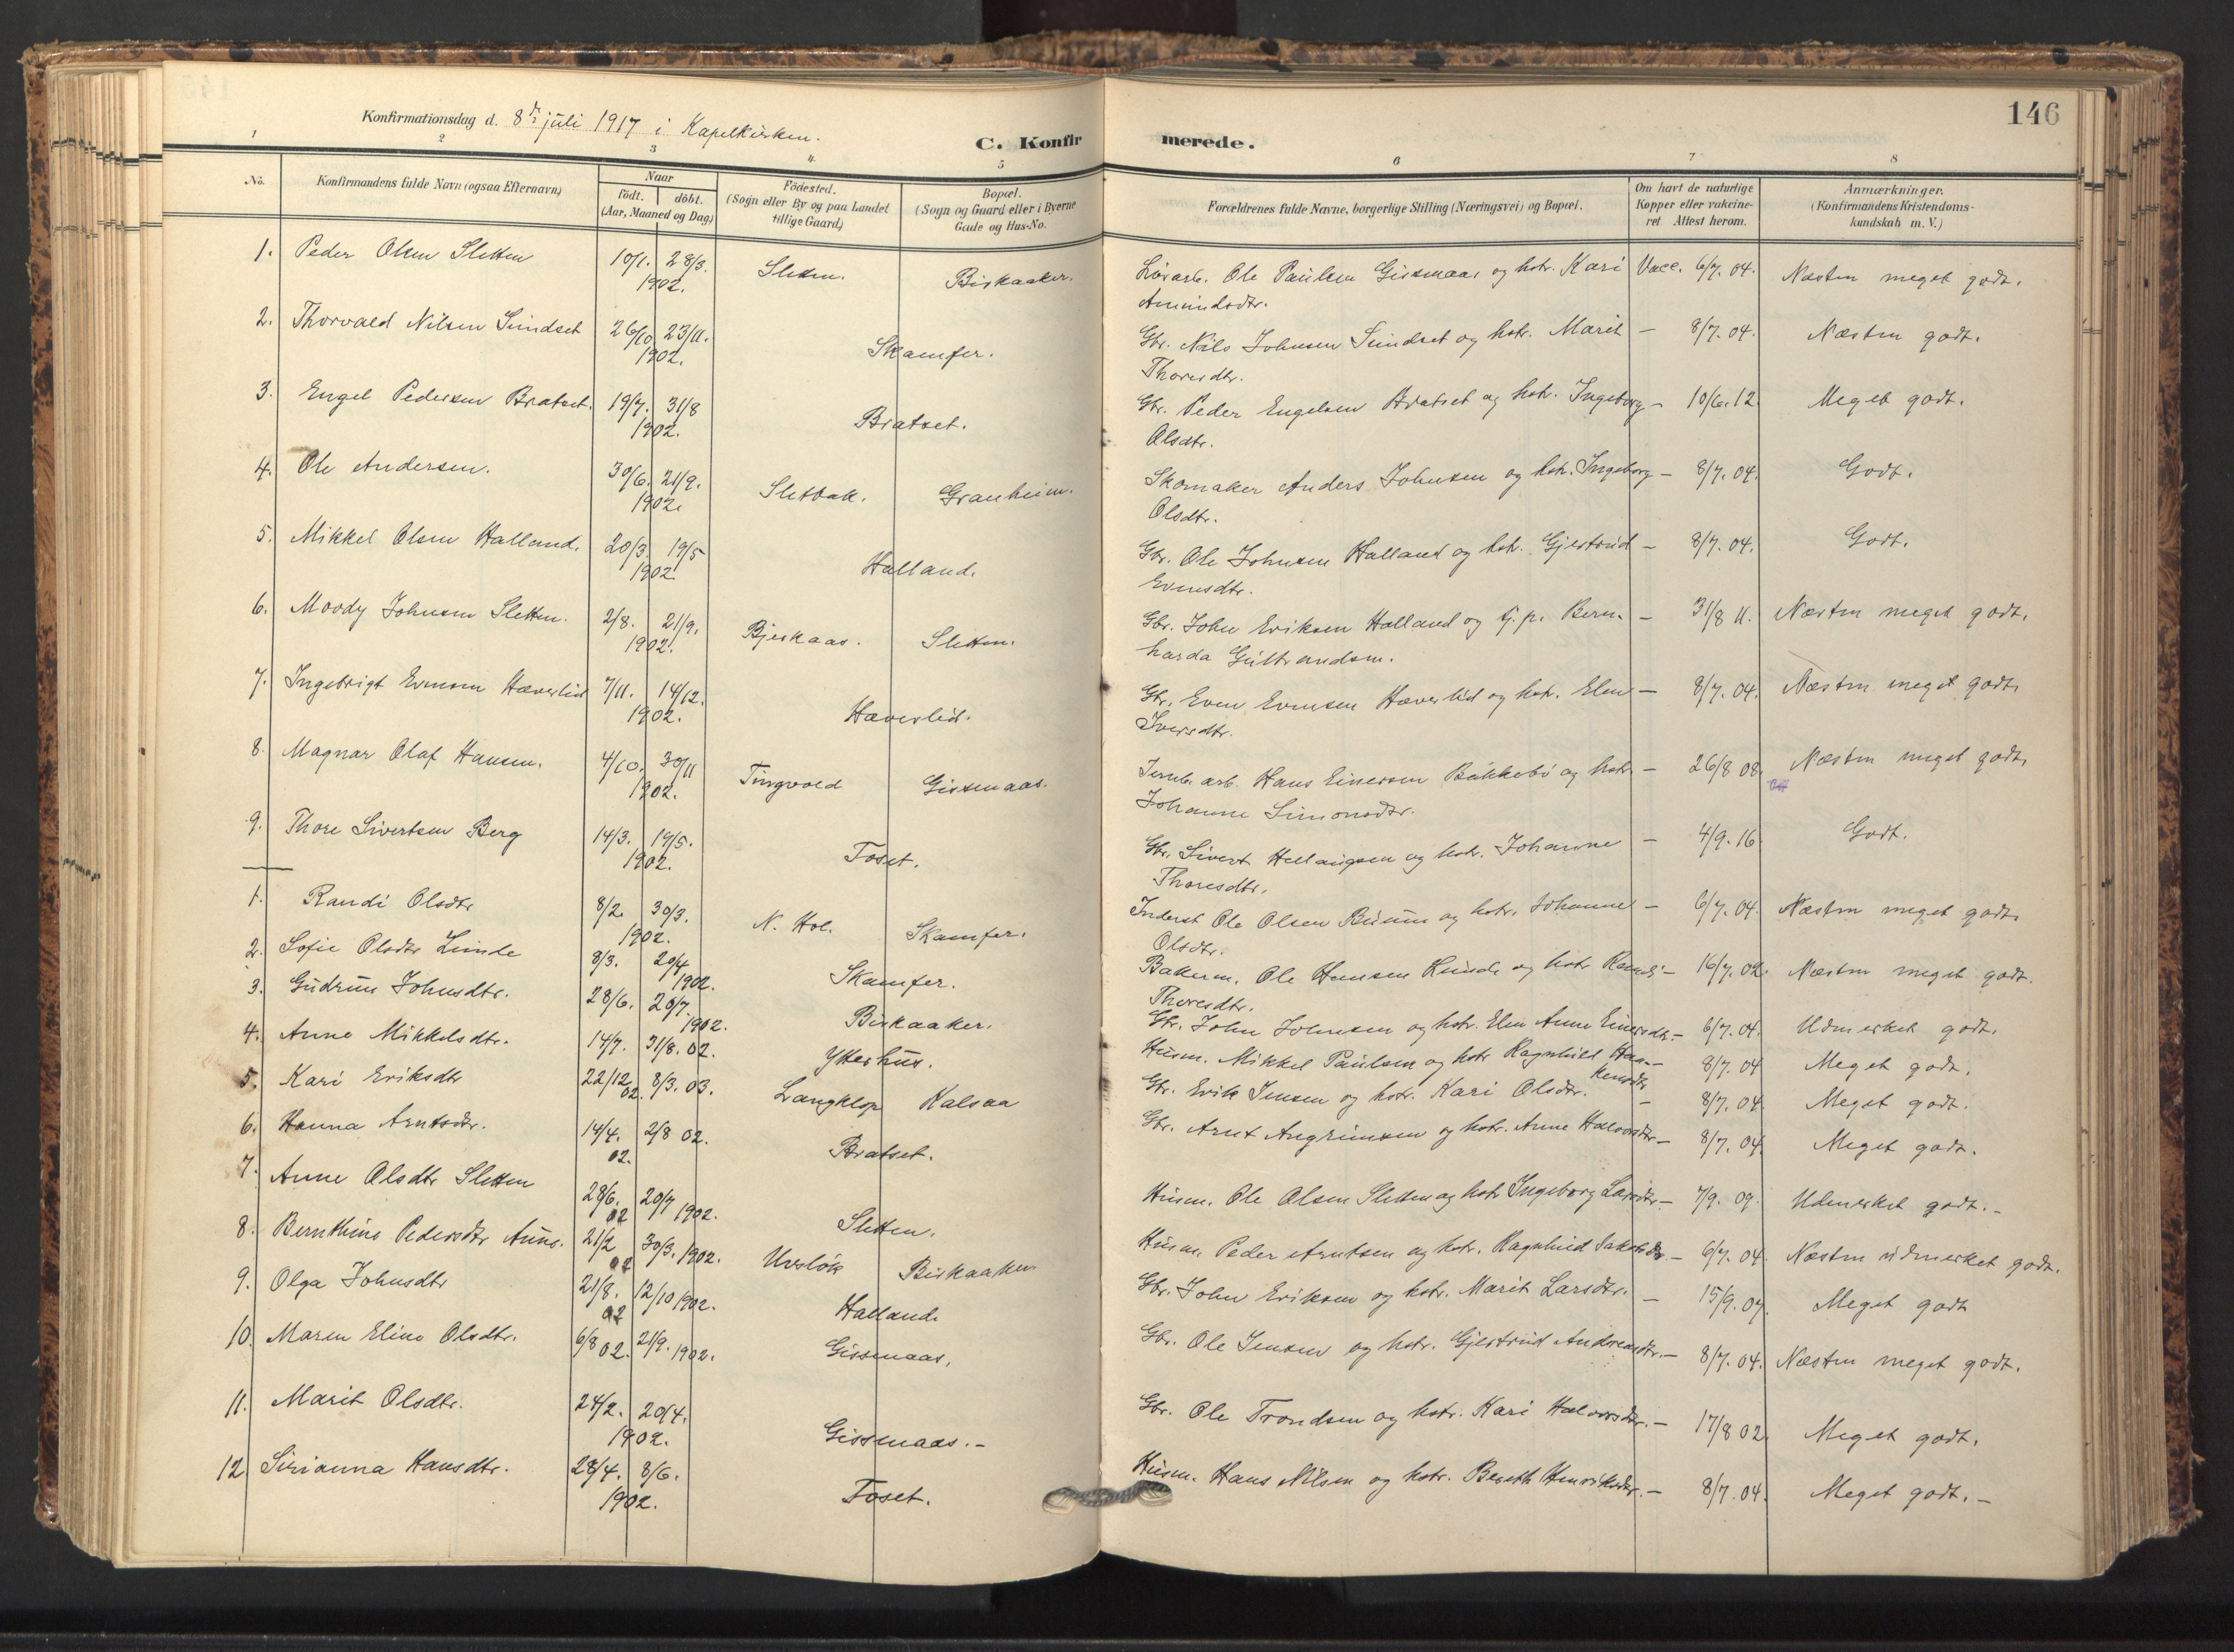 146
Konfirmationsdag d. 8de juli 1917 i Kapelkirken.
C. Konfirmerede.
1 2 3 4 5 6 7 8
No. Konfirmandens fulde Navn (ogsaa Efternavn) Naar født. døbt. (Aar, Maaned og Dag) Födested. (Sogn eller By og paa Landet tillige Gaard) Bopæl. (Sogn og Gaard eller i Byerne Gade og Hus-No. Forældrenes fulde Navne, borgerlige Stilling (Næringsvei) og Bopæl. Om havt de naturlige Kopper eller vakcineret. Attest herom. Anmærkninger. (Konfirmandens Kristendomskundskab m. V.)
1. Peder Olsen Sletten 10/1. 28/3. 1902. Sletten. Birkaaker. Løsarb. Ole Paulsen Gissmaas og hstr. Kari Amundsdtr. Vacc. 6/7. 04. Næsten meget godt.
2. Thorvald Nilsen Sundset 26/10 23/11. 1902. Skamfer. Gbr. Nils Johnsen Sundset og hstr. Marit Thoresdtr. – 8/7. 04. Næsten godt.
3. Engel Pedersen Bratset. 19/7. 31/8 1902. Bratset. Gbr. Peder Engelsen Bratset og hstr. Ingeborg Olsdtr. – 10/6. 12. Meget godt.
4. Ole Andersen. 30/6. 21/9. 1902. Sletbak. Granheim. Skomaker Anders Johnsen og hstr. Ingeborg Olsdtr. – 8/7. 04. Godt.
5. Mikkel Olsen Halland. 20/3. 19/5 1902. Halland. Gbr. Ole Johnsen Halland og hstr. Gjertrud Evensdtr. – 8/7. 04. Godt.
6. Moody Johnsen Sletten. 2/8. 21/9. 1902. Bjerkaas. Sletten. Gbr. John Eriksen Halland og tj.p. Bernharda Gulbrandsen. – 31/8 11. Næsten meget godt.
7. Ingebrigt Evensen Hæverlid 7/11. 14/12. 1902. Hæverlid. Gbr. Even Evensen Hæverlid og hstr. Elen Iversdtr. – 8/7. 04. Næsten meget godt.
8. Magnar Olaf Hansen. 4/10. 30/11 1902. Tingvold Gissmaas. Jernb. arb. Hans Einersen Bakkebø og hstr. Johanne Simonsdtr. – 26/8 08. Næsten meget godt.
9. Thore Sivertsen Berg 14/3. 19/5. 1902. Foset. Gbr. Sivert Hellaugsen og hstr. Johanne Thoresdtr. – 4/9. 16 Godt.
1. Randi Olsdtr 8/2. 30/3. 1902. N. Hol. Skamfer. Inderst Ole Olsen Buum og hstr. Johanne Olsdtr. – 6/7. 04. Næsten meget godt.
2. Sofie Olsdtr Linde 8/3. 20/4 1902. Skamfer. Bakerm. Ole Hansen Linde og hstr Randi Thoresdtr. – 16/7. 02. Næsten meget godt.
3. Gudrun Johnsdtr. 28/6. 20/7. 1902. Birkaaker. Gbr. John Johnsen og hstr. Elen Anne Einersdtr. – 6/7. 04. Udmerket godt.
4. Anne Mikkelsdtr. 14/7. 31/8. 02. Ytterhus. Husm. Mikkel Paulsen og hstr Ragnhild Haakensdtr – 8/7. 04 Meget godt.
5. Kari Eriksdtr 22/12 02. 8/3. 03. Langklop Kalsaa Gbr. Erik Jensen og hstr. Kari Olsdtr. – 8/7. 04. Meget godt.
6. Hanna Arntsdtr. 14/4. 02. 2/8 02. Bratset. Gbr. Arnt Angrimsen og hstr. Anne Halvorsdtr – 8/7. 04. Meget godt.
7. Anne Olsdtr Sletten 28/6. 02 20/7 1902. Sletten. Husm. Ole Olsen Sletten og hstr Ingeborg Larsdtr. – 7/9. 09. Udmerket godt. –
8. Bernthine Pedersdtr Aune. 21/2 02 30/3. 1902. Birkaaker Husm. Peder Arntsen og hstr. Ragnhild Jakobsdtr – 6/7. 04. Næsten udmerket godt.
9. Olga Johnsdtr 21/8. 02 12/10 1902. Halland. Gbr. John Eriksen og hstr. Marit Larsdtr. – 15/9. 07. Meget godt
10. Maren Eline Olsdtr. 6/8 02. 21/9. 1902. Gissmaas. Gbr. Ole Jensen og hstr. Gjertrud Andreasdtr. – 8/7. 04. Næsten meget godt.
11. Marit Olsdtr. 24/2. 20/4. 1902. Gissmaas. – Gbr. Ole Trondsen og hstr. Kari Halvorsdtr. – 17/8 02. Meget godt.
12. Sirianna Hansdtr. 28/4. 8/6. 1902. Foset. Husm. Hans Nilsen og hstr. Bereth Henriksdtr. – 8/7. 04. Meget godt. –